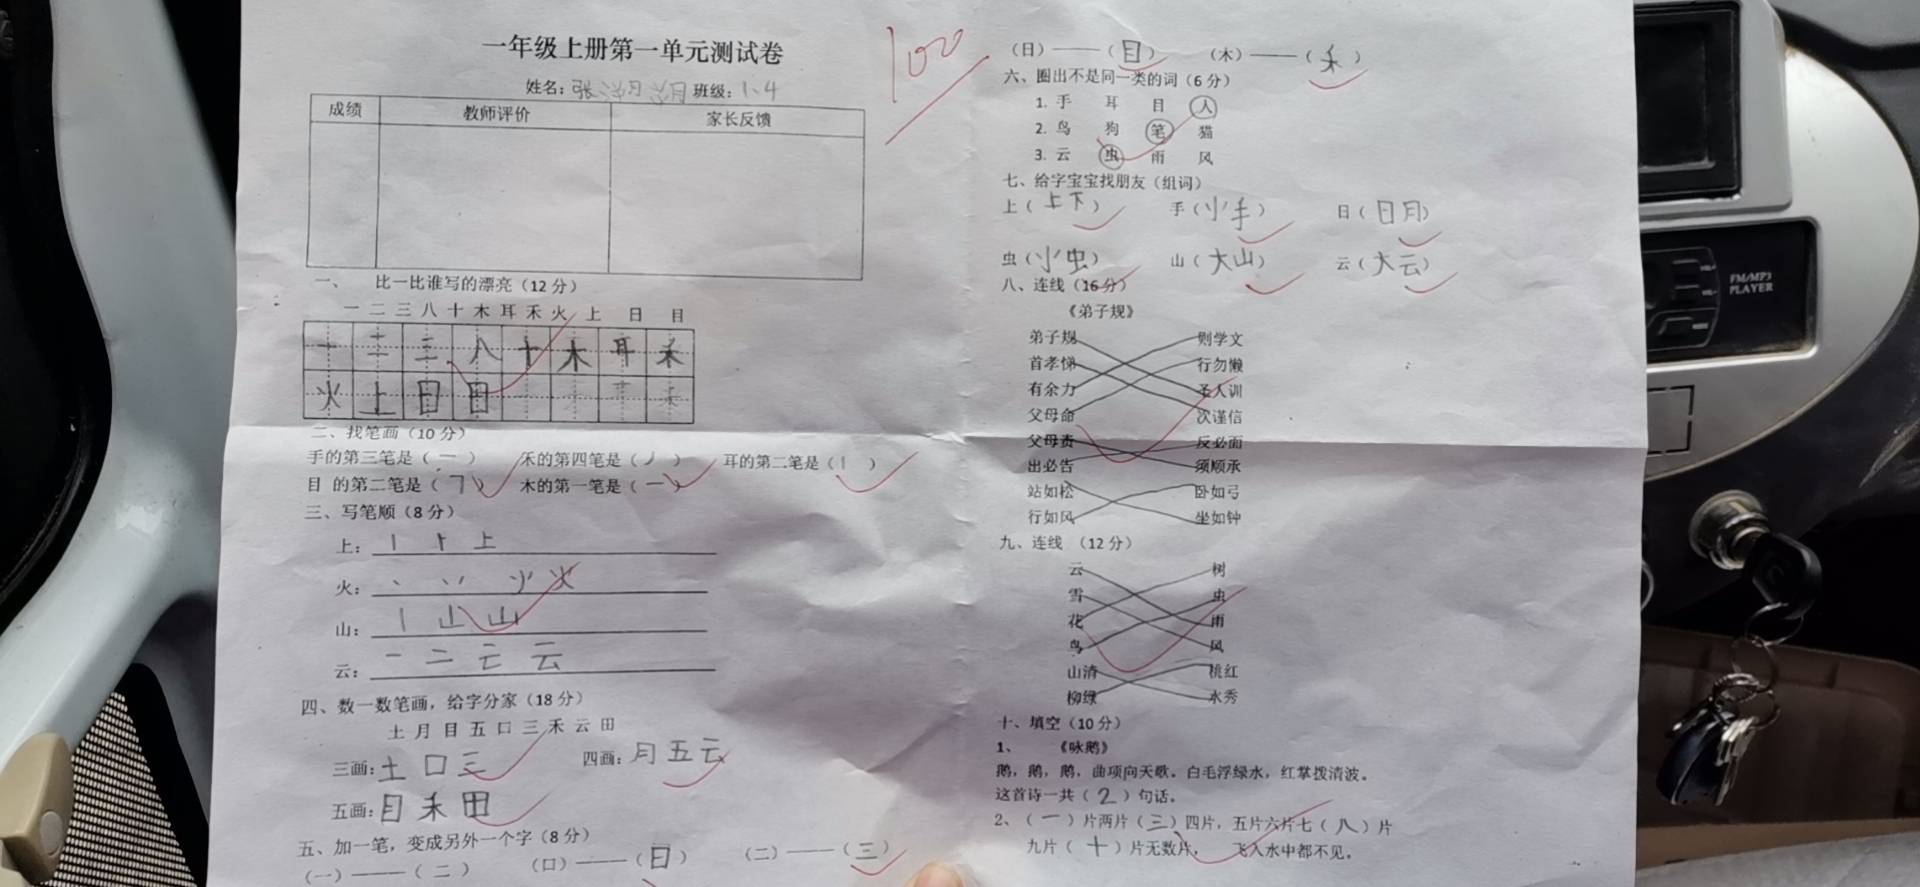 一年级上册第一单元测试卷
姓名：张湖湖 班级：1、4
100
成绩 教师评价 家长反馈
一、 比一比谁写的漂亮（12分）
一 二 三 八 十 木 耳 禾 火 上 日 目
一 二 三 八 十 木 耳 禾
火 上 日 目
二、找笔画（10分）
手的第三笔是（一） 禾的第四笔是（丿） 耳的第二笔是（丨）
目 的第二笔是（𠃌） 木的第一笔是（一）
三、写笔顺（8分）
上：丨 ⺊ 上
火：丶 丷 火
山：丨 山
云：一 二 云
四、数一数笔画，给字分家（18分）
土 月 目 五 口 三 禾 云 田
三画：土 口 三 四画：月 五 云
五画：目 禾 田
五、加一笔，变成另外一个字（8分）
（一）——（二） （口）——（日） （二）——（三）
（日）——（目） （木）——（禾）
六、圈出不是同一类的词（6分）
1. 手 耳 目 人
2. 鸟 狗 笔 猫
3. 云 虫 雨 风
七、给字宝宝找朋友（组词）
上（上下） 手（小手） 日（日月）
虫（小虫） 山（大山） 云（大云）
八、连线（16分）
《弟子规》
弟子规 则学文
首孝悌 行勿懒
有余力 圣人训
父母命 次谨信
父母责 反必面
出必告 须顺承
站如松 卧如弓
行如风 坐如钟
九、连线 （12分）
云 树
雪 虫
花 雨
鸟 风
山清 桃红
柳绿 水秀
十、填空（10分）
1、 《咏鹅》
鹅，鹅，鹅，曲项向天歌。白毛浮绿水，红掌拨清波。
这首诗一共（2）句话。
2、（一）片两片（三）四片，五片六片七（八）片
九片（十）片无数片， 飞入水中都不见。
FM/MP3
PLAYER